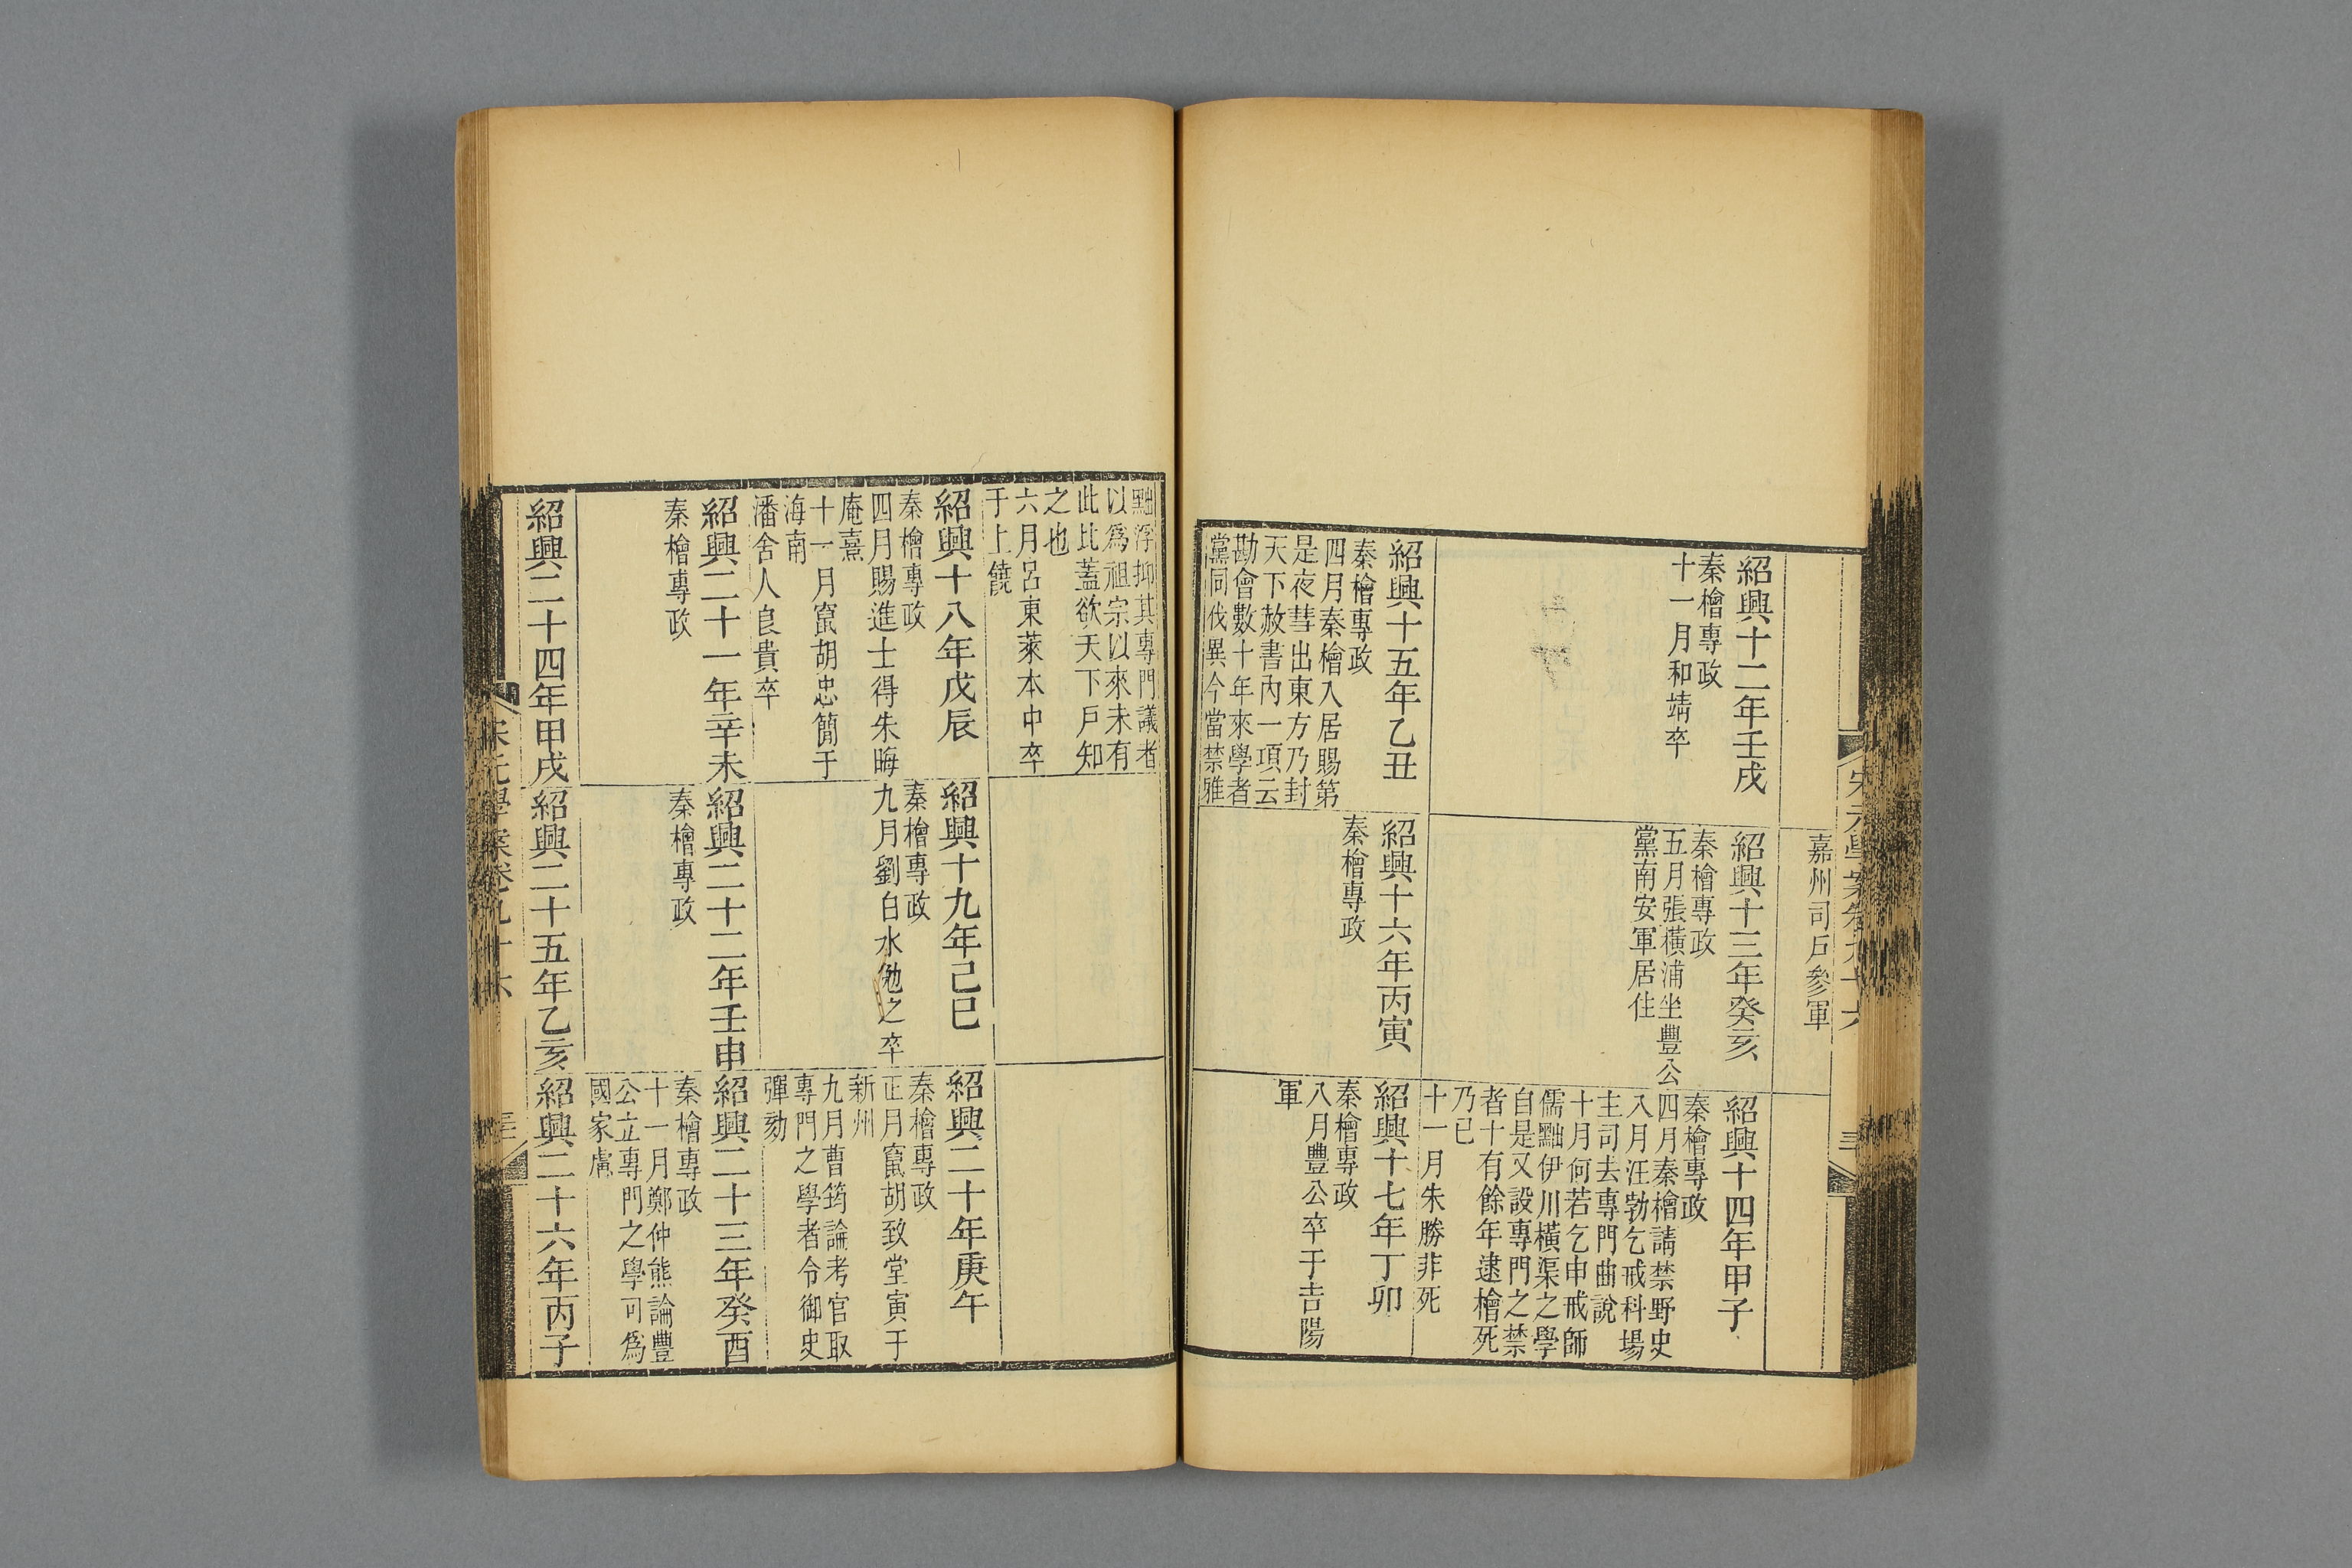 嘉州司戶參軍
紹興十二年壬戌
秦檜專政
十一月和靖卒
紹興十三年癸亥
秦檜專政
五月張橫浦坐豐公
黨南安軍居住
紹興十四年甲子
秦檜專政
四月秦檜請禁野史
八月汪勃乞戒科場
主司去專門曲說
十月何若乞申戒師
儒黜伊川橫渠之學
自是又設專門之禁
者十有餘年逮檜死
乃已
十一月朱勝非死
紹興十五年乙丑
秦檜專政
四月秦檜入居賜第
是夜彗出東方乃封
天下赦書內一項云
勘會數十年來學者
黨同伐異今當禁雅
紹興十六年丙寅
秦檜專政
紹興十七年丁卯
秦檜專政
八月豐公卒于吉陽
軍
宋元學案卷九十六
黜浮抑其專門議者
以爲祖宗以來未有
此比蓋欲天下戶知
之也
六月呂東萊本中卒
于上饒
紹興十八年戊辰
秦檜專政
四月賜進士得朱晦
庵熹
十一月竄胡忠簡于
海南
潘舍人良貴卒
紹興十九年己巳
秦檜專政
九月劉白水勉之卒
紹興二十年庚午
秦檜專政
正月竄胡致堂寅于
新州
九月曹筠論考官取
專門之學者令御史
彈劾
紹興二十一年辛未
秦檜專政
紹興二十二年壬申
秦檜專政
紹興二十三年癸酉
秦檜專政
十一月鄭仲熊論豐
公立專門之學可爲
國家慮
紹興二十四年甲戌
紹興二十五年乙亥
紹興二十六年丙子
宋元學案卷九十六